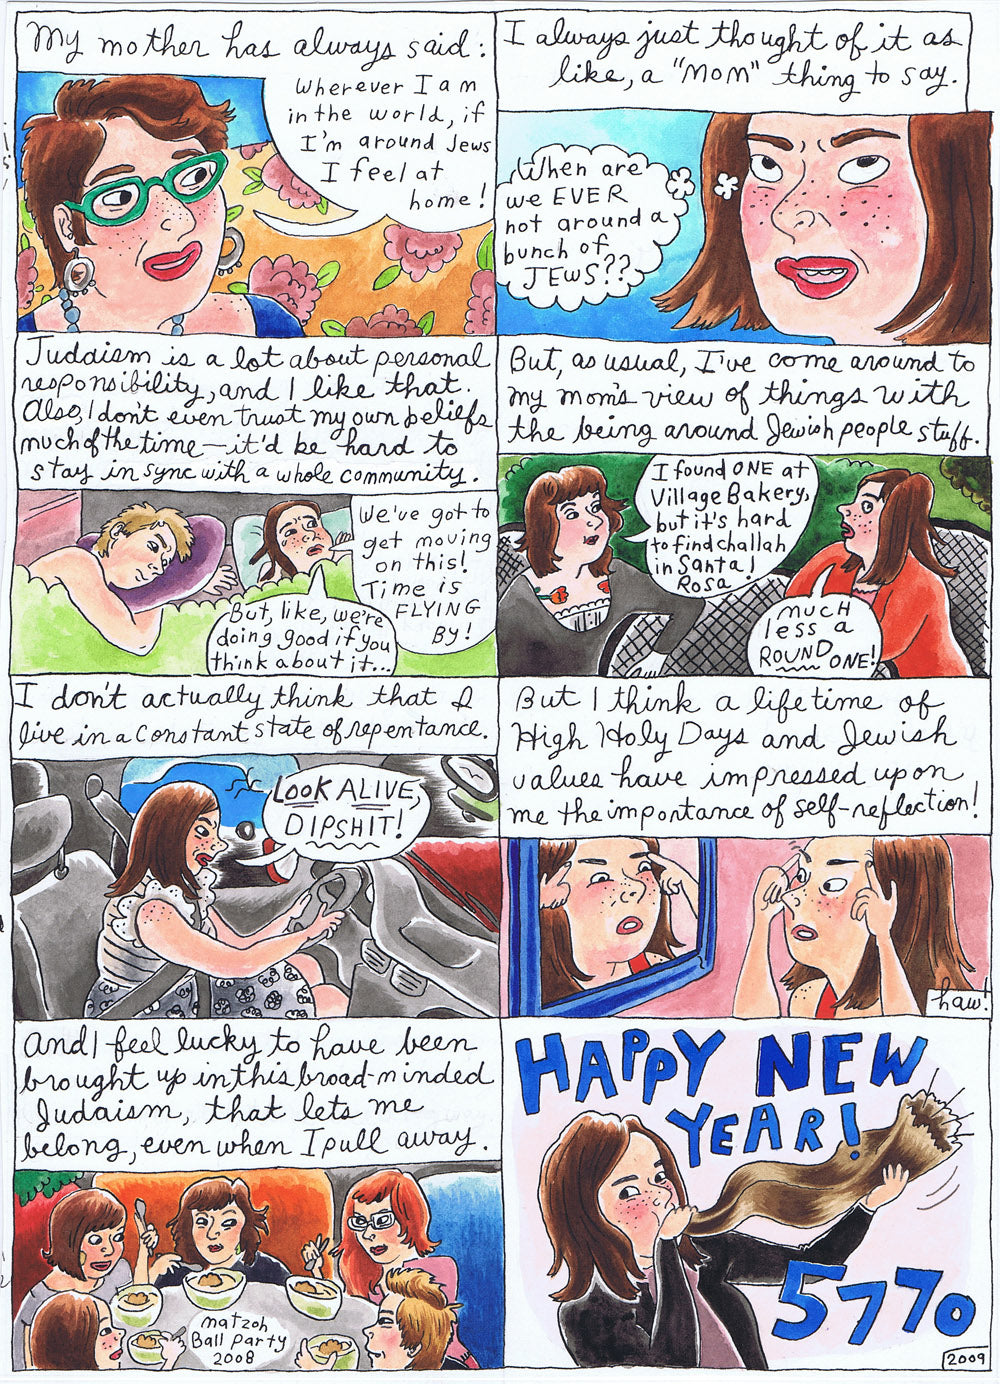 My mother has always said:
Wherever I am
in the world, if
I'm around Jews
I feel at
home!
I always just thought of it as
like, a "MOM" thing to say.
When are
we EVER
not around a
bunch of
JEWS??
Judaism is a lot about personal
responsibility, and I like that.
Also, I don't even trust my own beliefs
much of the time—it'd be hard to
stay in sync with a whole community.
We've got to
get moving
on this!
Time is
FLYING
BY!
But, like, we're
doing good if you
think about it...
But, as usual, I've come around to
my mom's view of things with
the being around Jewish people stuff.
I found ONE at
Village Bakery,
but it's hard
to find challah
in Santa
Rosa!
much
less a
ROUND
ONE!
I don't actually think that I
live in a constant state of repentance.
LOOK ALIVE,
DIPSHIT!
But I think a lifetime of
High Holy Days and Jewish
values have impressed upon
me the importance of self-reflection!
haw!
And I feel lucky to have been
brought up in this broad-minded
Judaism, that lets me
belong, even when I pull away.
matzoh
Ball Party
2008
HAPPY NEW
YEAR!
5770
2009